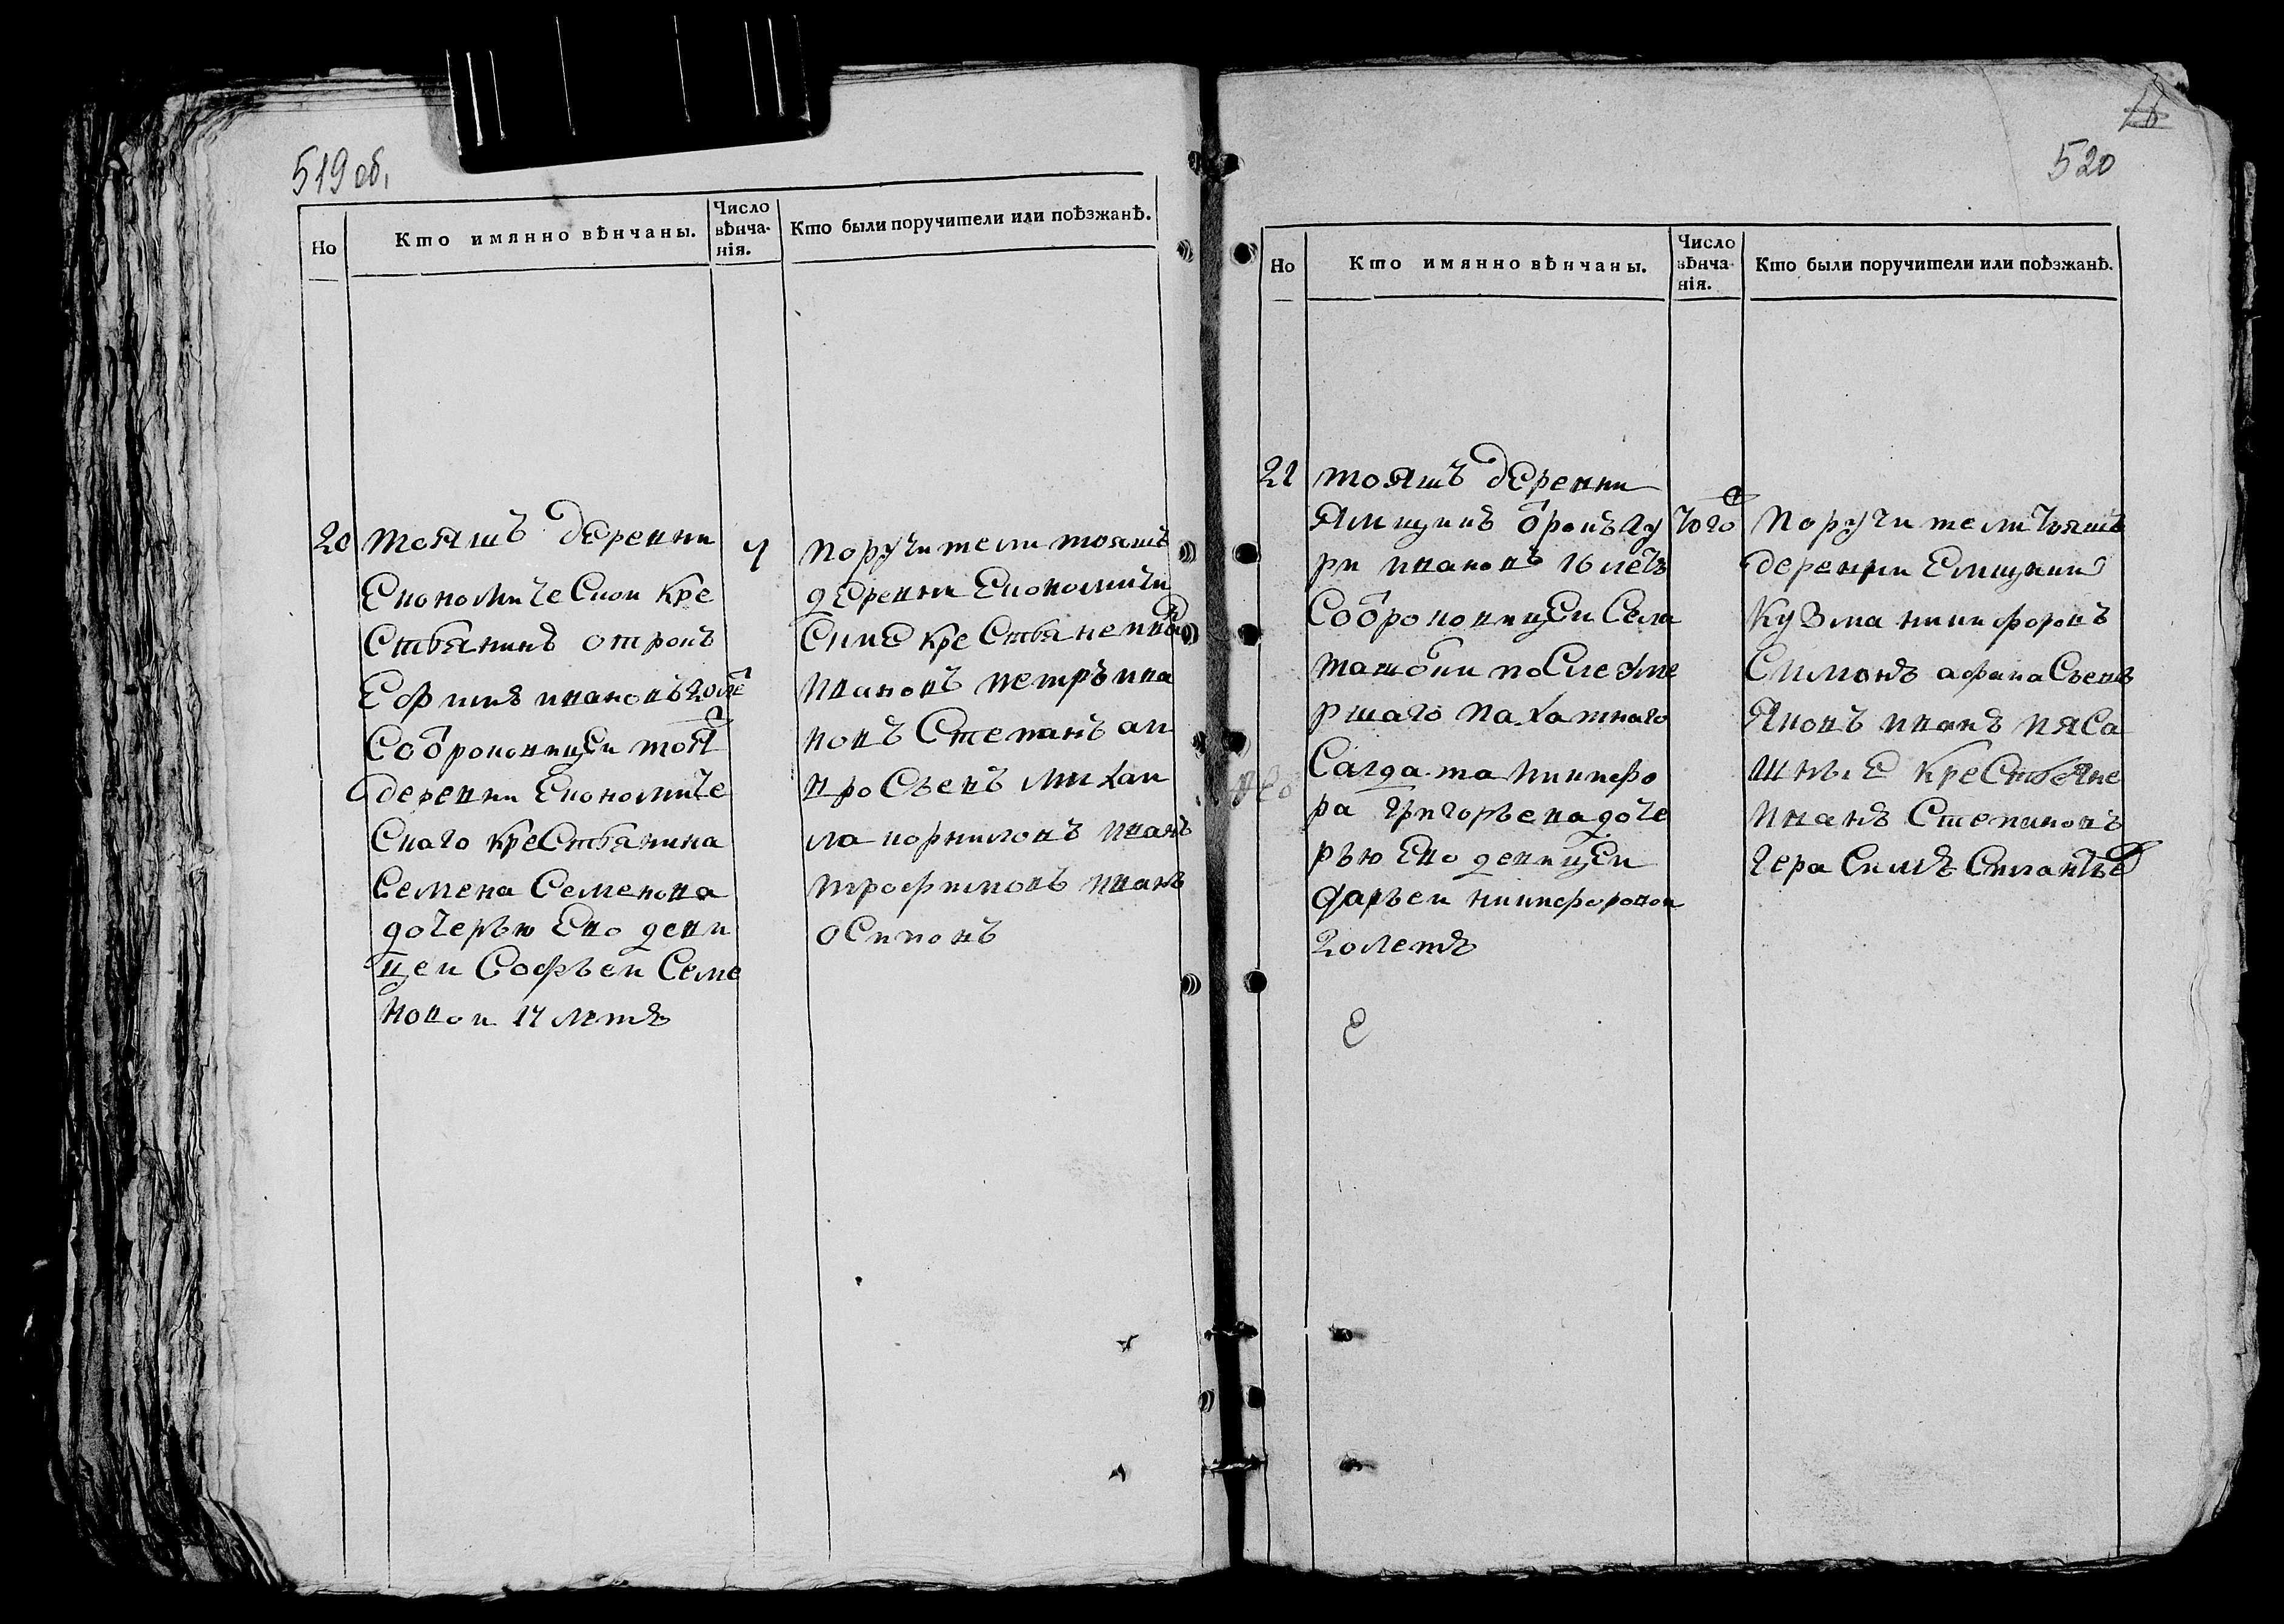 519 об,
Но
Кто имянно вѣнчаны.
Число вѣнча-
нія.
Кто были поручители или поѣзжанѣ.
20
тояжъ деревни
Економическои кре
стьянинъ отрокъ
Ефимъ ивановъ 20 ле
Соброковицеи тоя
деревни Економиче
скаго крестьянина
Семена Семенова
дочерью Ево деви
цеи Софьеи Семе
новои 17 летъ
4
поручители тояжъ
деревни Економиче
ские крестьяне
ивановъ петръ ива
новъ Степанъ ам
вросьевъ михаи
ла корниловъ иванъ
трофимовъ иванъ
осиповъ
18
520
Но
Кто имянно вѣнчаны.
Число
вѣнча-
нія.
Кто были поручители или поѣзжанѣ.
21
тояжъ деревни
Ямщикъ отрокъ гу
ри ивановъ 16 летъ
Соброковицеи Села
ташбки после уме
ршаго пахатнаго
Салдата никифо
ра григорьева доче
рью Ево девицеи
дарьеи никифоровои
20 летъ
того
Поручители тояжъ
деревни Емщики
Кузма никифоровъ
Симонъ афанасьевъ
Яковъ иванъ пяса
шные крестьяне
иванъ Степановъ
герасимъ Силантье